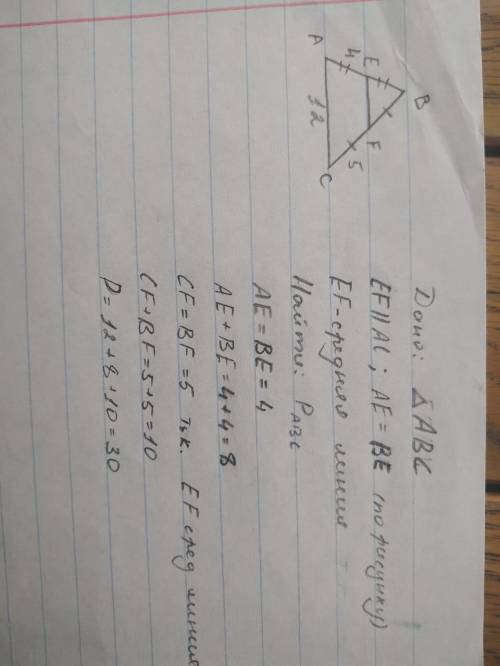 B
E
4
F
5
A
12
C
Дано: △ABC
EF||AC; AE=BE (по рисунку)
EF-средняя линия
Найти: PABC
AE=BE=4
AE+BE=4+4=8
CF=BF=5 т.к. EF сред линия
CF+BF=5+5=10
P=12+8+10=30